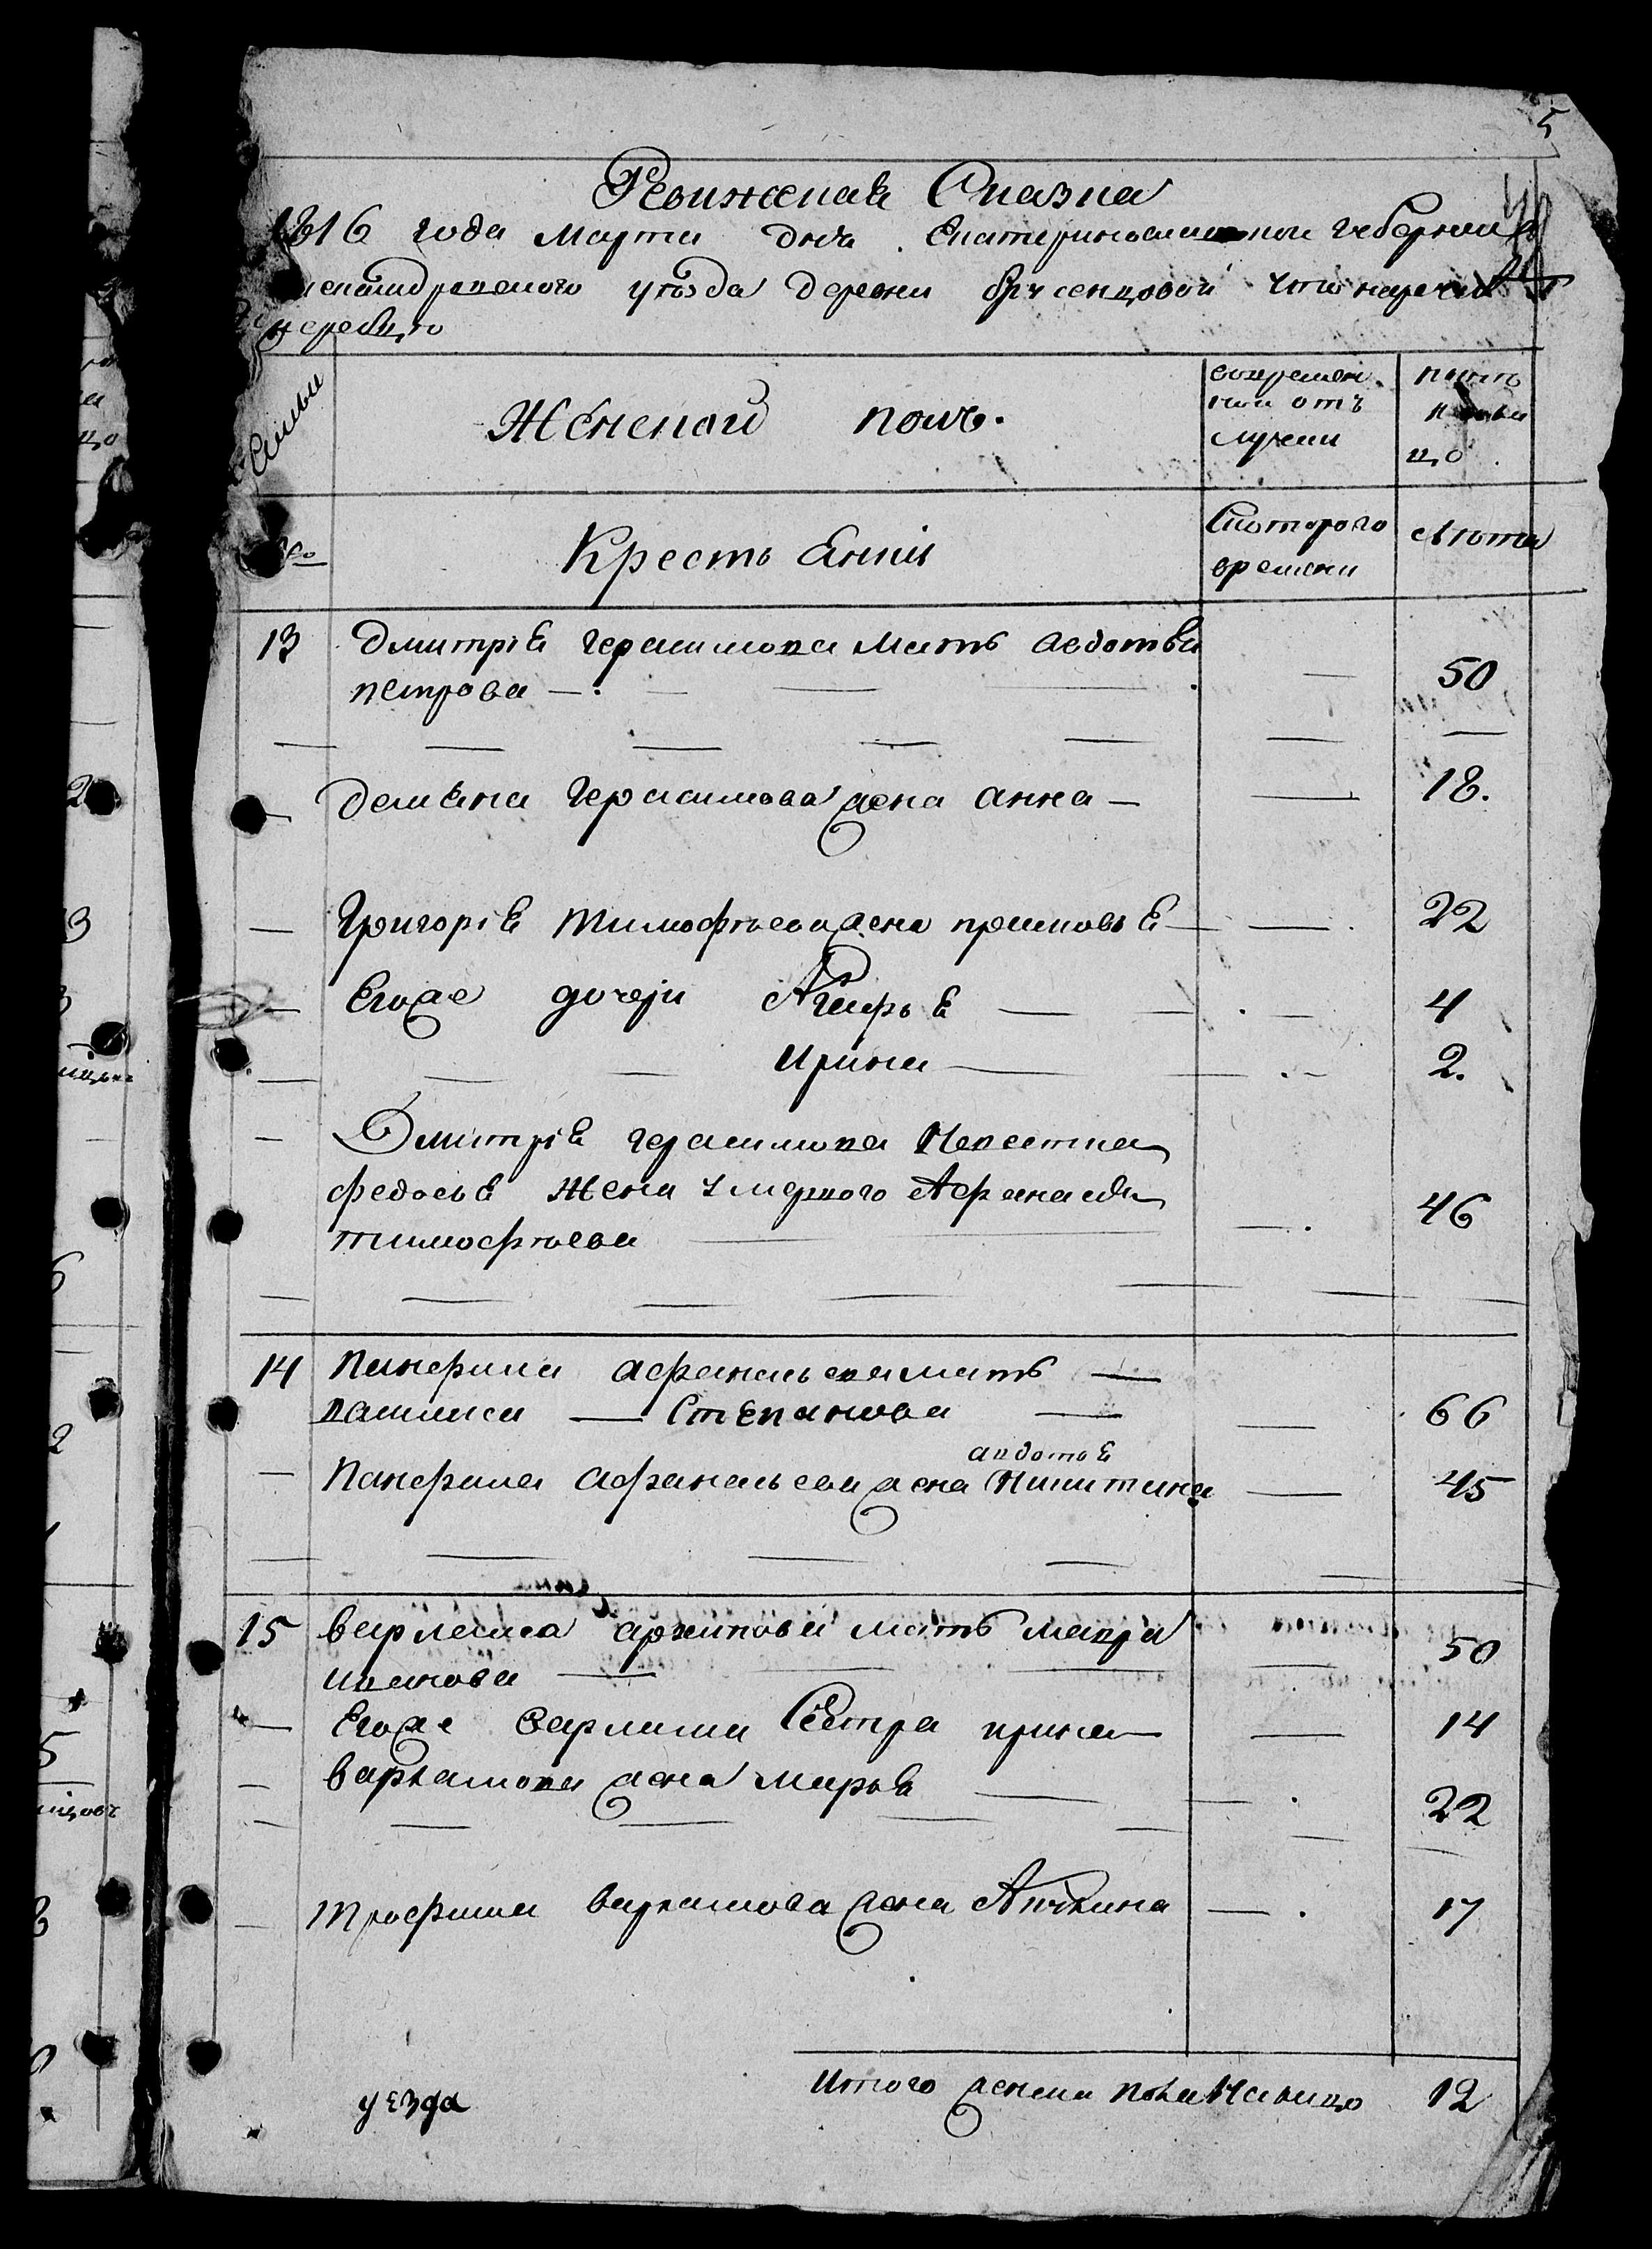 5
Ревижская Сказка
1816 года Марта дня Екатеринославской губернии
Александровского уѣзда деревни Брусенцовой что на речке
Семьи
Женской полъ.
во времен
ной отъ
лучки
ныне
на лицо
Крестьяние
С которого
времени
Лѣта
13 Дмитрія герасимова Мать авдотья
петрова — 50
Демьяна Герасимова жена анна — 18.
Григорія тимофѣева жена прасковья — 22
Егоже дочери Марья — 4
Ирина — 2.
Дмитрія герасимова Невестка
федосья жена умершого Афанасья
тимофѣева 46
14 Панфила афанасьева мать —
василиса — Степанова — 66
авдотья
Панфила афанасьева жена Никитина — 45
15 варлама архипова мать мавра
иванова — 50
Егоже варлама Сестра ирина — 14
варламова жена марья — 22
трофима варламова жена Акулина — 17
Итого женска пола На лицо 12
уезда